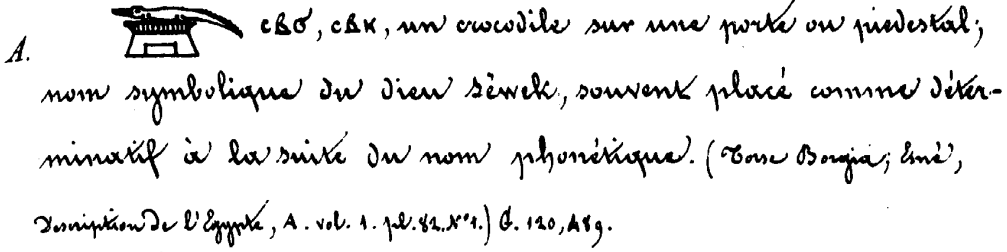 A. ⲥⲃϭ, ⲥⲃⲕ, un crocodile sur une porte ou piédestal;
nom symbolique du dieu Sévek, souvent placé comme déter-
minatif à la suite du nom phonétique. (Torse Borgia; Esné,
Description de l'Egypte, A. vol. 1. pl. 82. N° 1.) G. 120, 489.